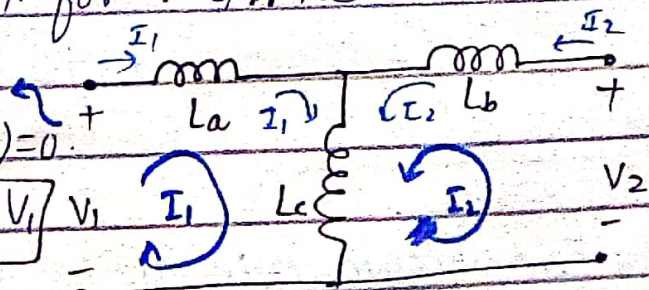 for
I1 I2
+ La I1 I2 Lb +
)=0.
V1 V1 I1 Lc I2 V2
- -